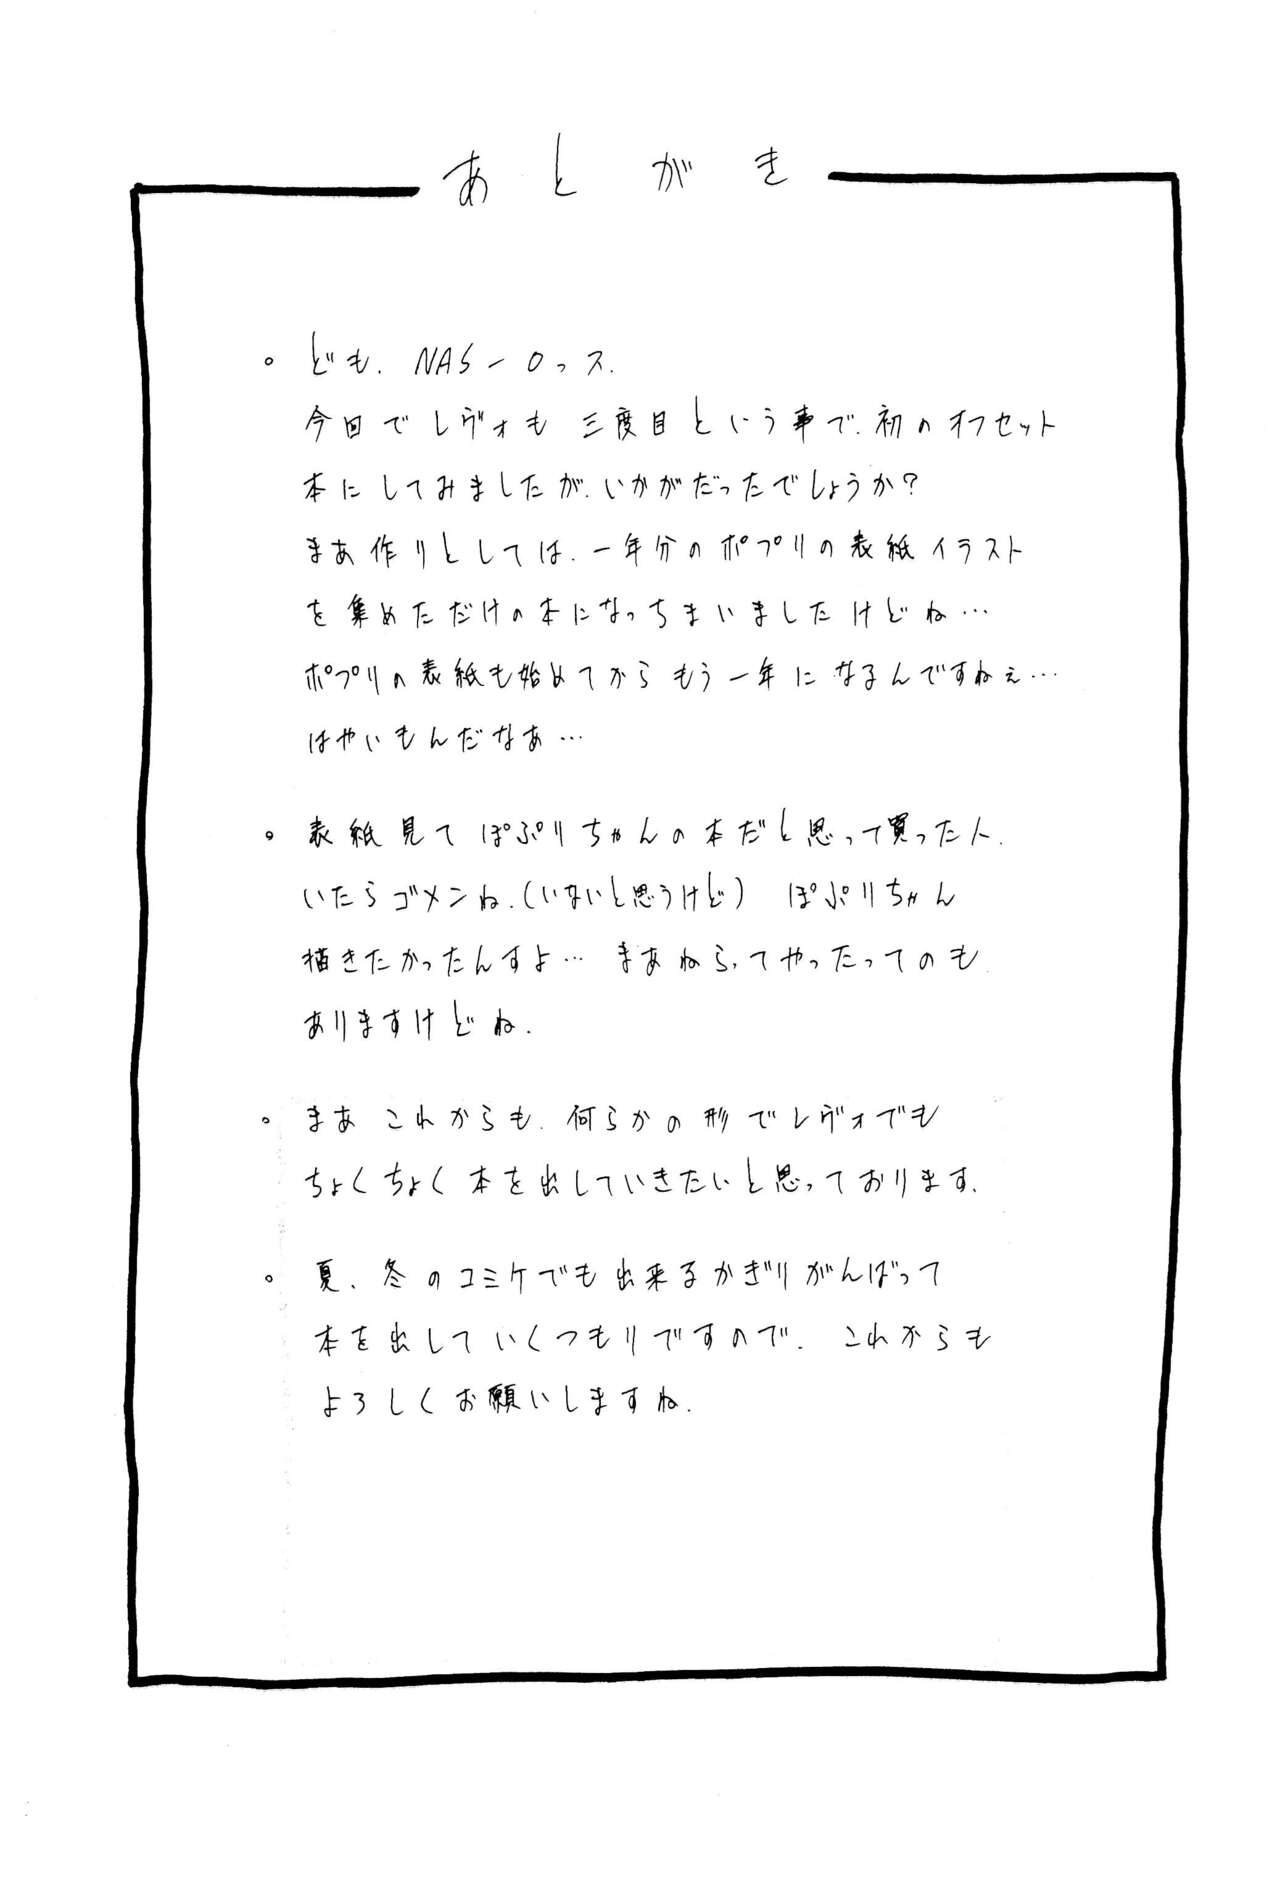 あとがき
。ども、NAS-Oっス.
今回でレヴォも三度目という事で、初のオフセット
本にしてみましたが、いかがだったでしょうか?
まあ作りとしては、一年分のポプリの表紙イラスト
を集めただけの本になっちまいましたけどね…
ポプリの表紙も始めてからもう一年になるんですねぇ…
はやいもんだなあ…
。表紙見てぽぷりちゃんの本だと思って買った人、
いたらゴメンね、(いないと思うけど) ぽぷりちゃん
描きたかったんすよ… まあねらってやったってのも
ありますけどね.
。まあこれからも、何らかの形でレヴォでも
ちょくちょく本を出していきたいと思っております.
。夏、冬のコミケでも出来るかぎりがんばって
本を出していくつもりですので、これからも
よろしくお願いしますね.